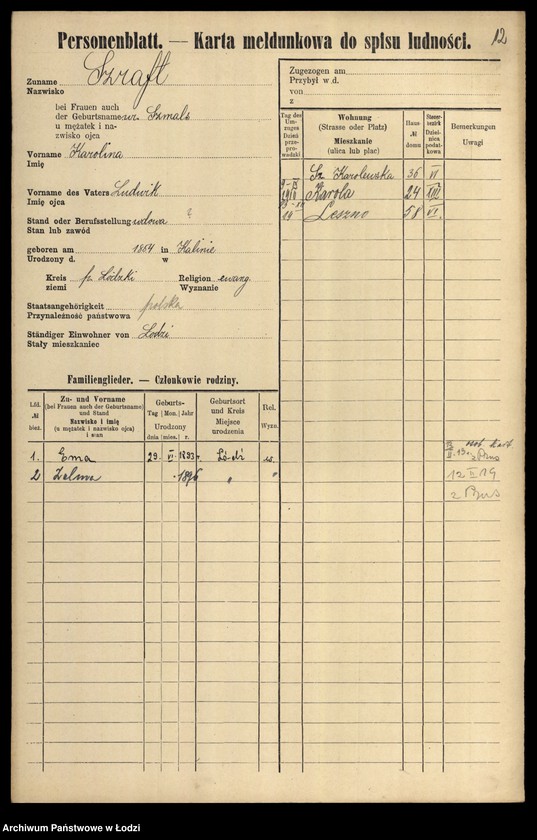 Personenblatt. — Karta meldunkowa do spisu ludności. 12
Zuname Szraft
Nazwisko
bei Frauen auch
der Geburtsname ur. Szmalc
u mężatek i na-
zwisko ojca
Vorname Karolina
Imię
Vorname des Vaters Ludwik
Imię ojca
Stand oder Berufsstellung wdowa
Stan lub zawód
geboren am 1854 in Kalinie
Urodzony d. w
Kreis p. Łódzki Religion ewang.
ziemi Wyznanie
Staatsangehörigkeit polska
Przynależność państwowa
Ständiger Einwohner von Łodzi
Stały mieszkaniec
Zugezogen am
Przybył w d.
von
z
Tag des Um-zuges Dzień prze-pro-wadzki
Wohnung (Strasse oder Platz) Mieszkanie (ulica lub plac)
Haus-№ domu
Steuer-bezirk Dziel-nica podat-kowa
Bemerkungen Uwagi
Sz. Karolewska 36 VI
Karola 24 VIII
Leszno 58 VI.
Familienglieder. — Członkowie rodziny.
Lfd. № bież.
Zu- und Vorname (bei Frauen auch der Geburtsname und Stand Nazwisko i imię (u mężatek i nazwisko ojca) i stan
Geburts- Tag Mon. Jahr Urodzony dnia mies. r.
Geburtsort und Kreis Miejsce urodzenia
Rel. Wyzn.
1. Ema 29 VI 1893 r. Łódź
2 Zelma 1896 "
12 19
z Prus
Archiwum Państwowe w Łodzi